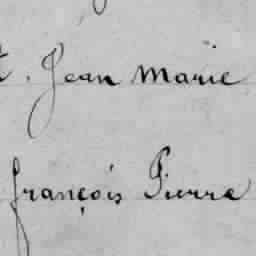 t. Jean Marie
françois Pierre